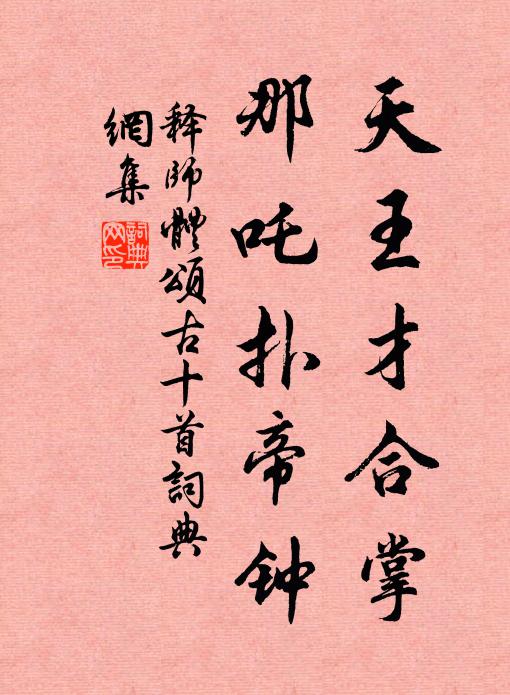 天王才合掌
那吒扑帝钟
释師體頌古十首詞典
網集
詞典
网印